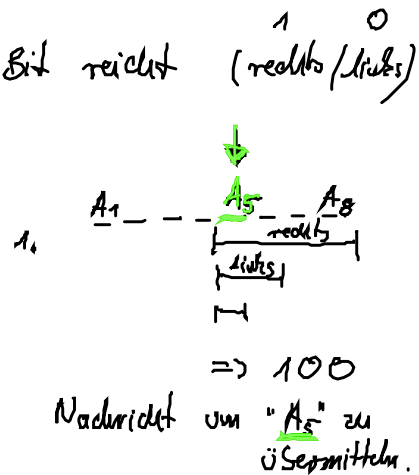 1 0
Bit reicht (rechts/links)
A5
A1 A8
1. rechts
links
=> 100
Nachricht um "A5" zu
übermitteln.